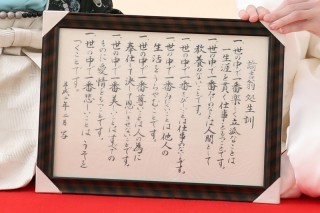 諭吉翁処生訓
一世の中で一番楽しく立派なことは
一生涯を貫く仕事をもつことです
一世の中で一番みじめなことは人間として
教養のないことです
一世の中で一番さびしいことは仕事のないことです
一世の中で一番みにくいことは他人の
生活をうらやむことです
一世の中で一番尊いことは人の為に
奉仕して決して恩にきせないことです
一世の中で一番美しいことはすべての
ものに愛情をもつことです
一世の中で一番悲しいことはうそを
つくことです